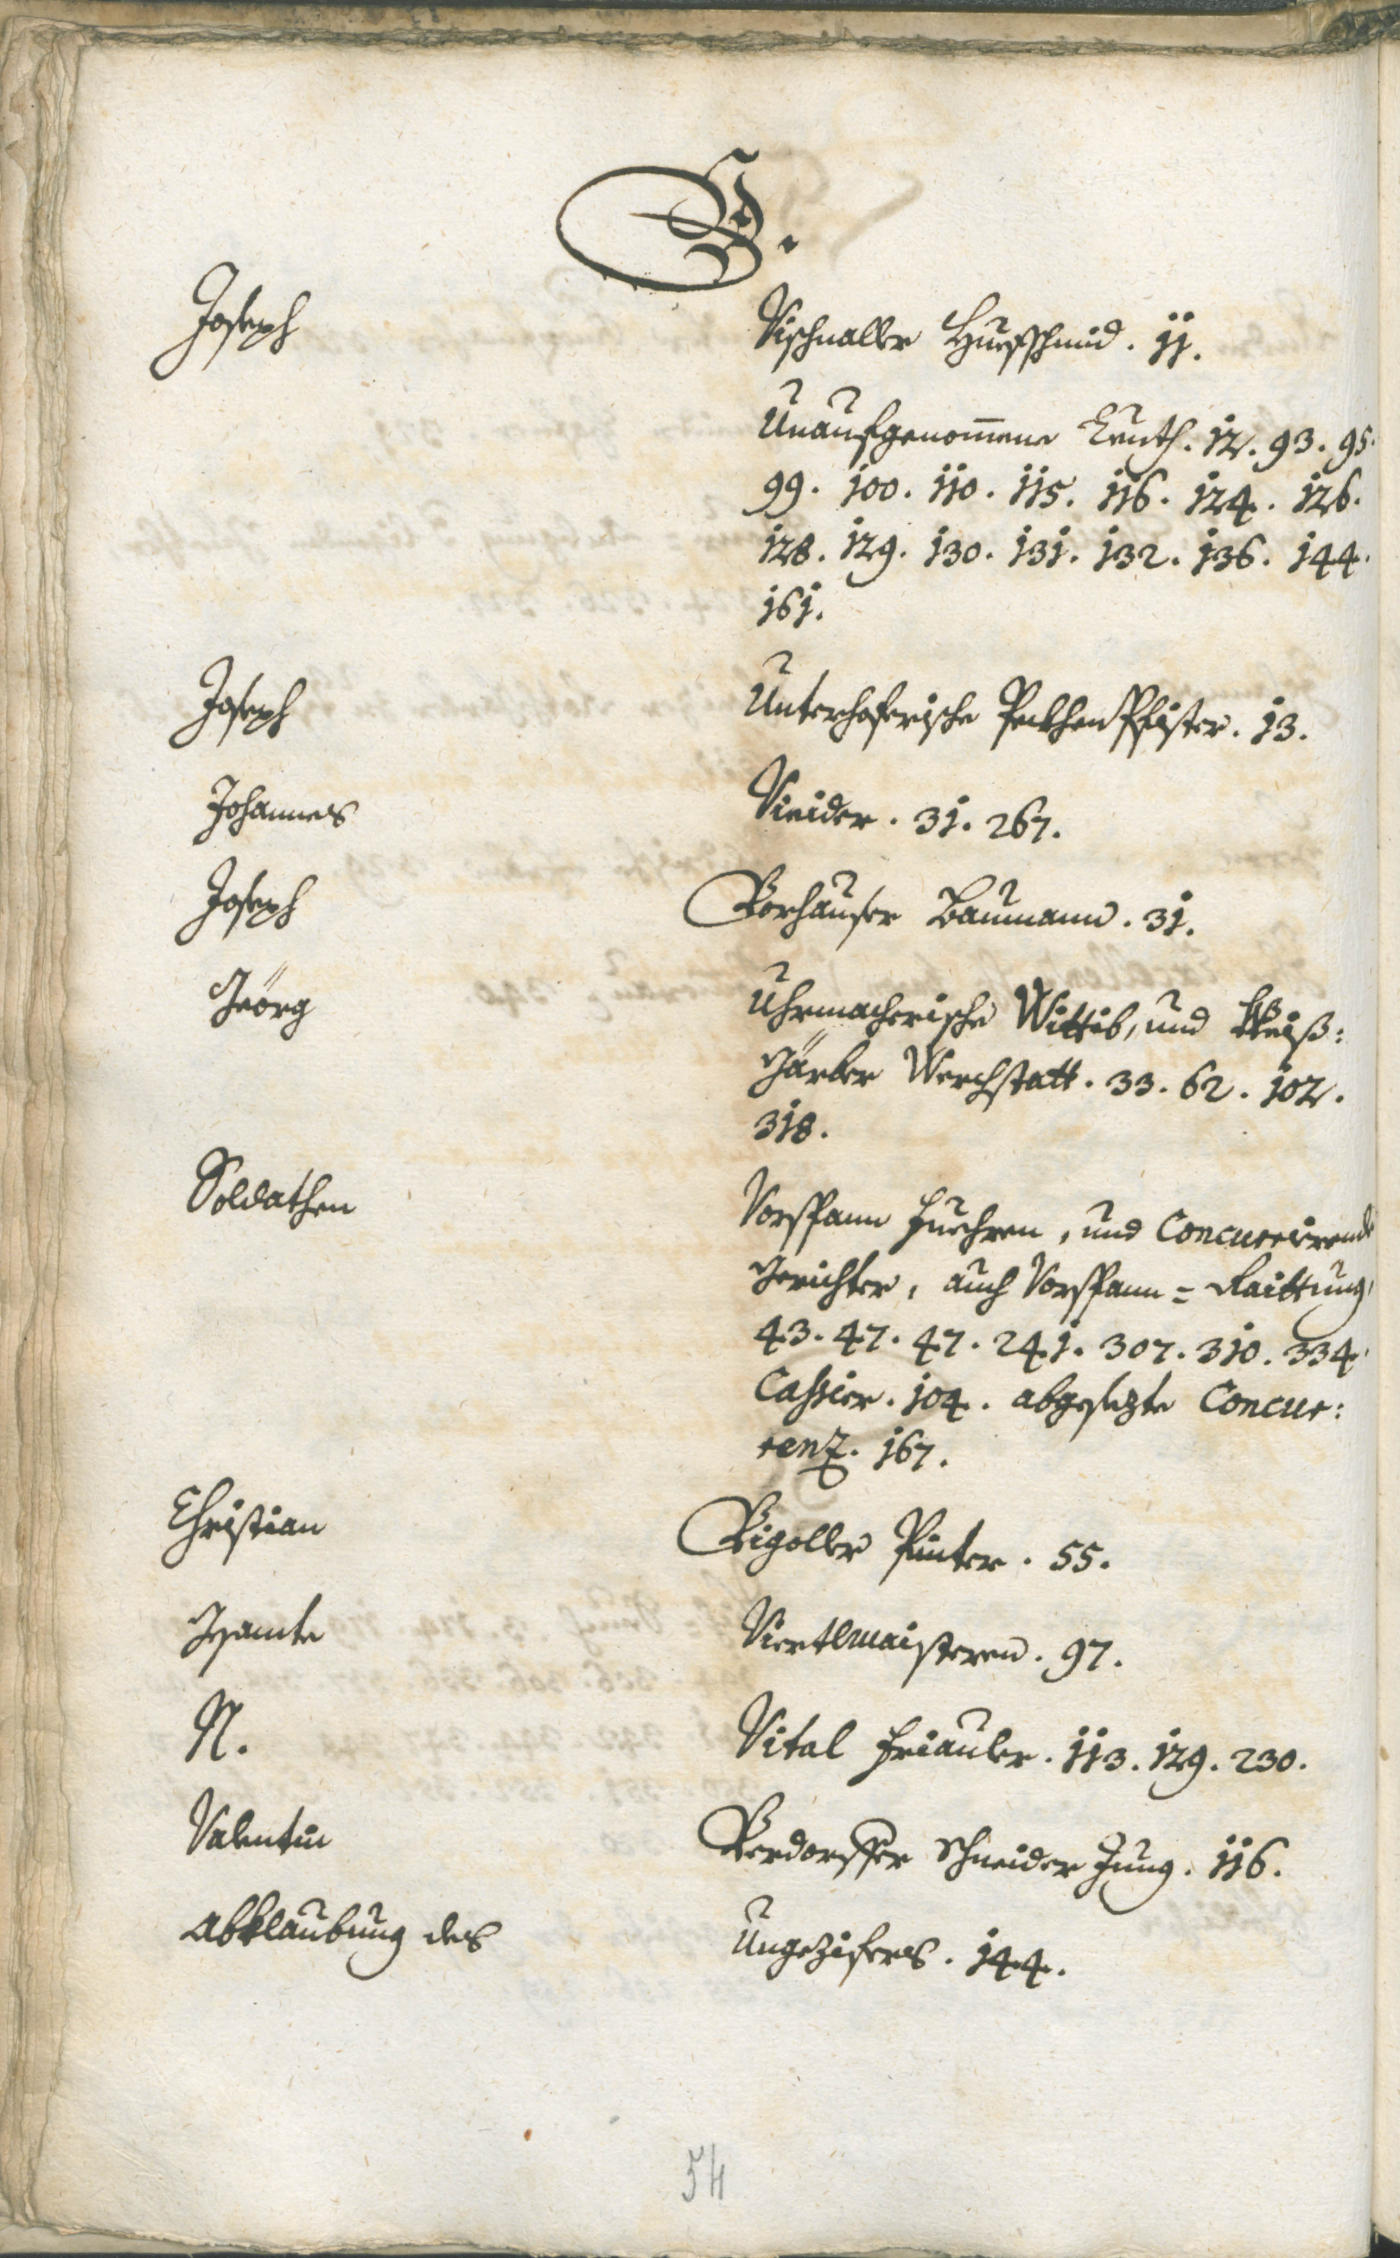 V.
Joseph Vischnaller Huefschmid. 11.
Unaufgenom̄ene Leuth. 12. 93. 95.
99. 100. 110. 115. 116. 124. 126.
128. 129. 130. 131. 132. 136. 144.
161.
Joseph Unterhoferische Peckhen Pfister. 13.
Johannes Vieider. 31. 267.
Joseph Vorhauser Baumann. 31.
Geörg Uhrmacherische Wittib, und Weiß:
Gärber Werchstatt. 33. 62. 102.
318.
Soldathen Vorspann Fuehren, und Concurrirende
Gerichter, auch Vorspann= Raittung,
43. 47. 47. 241. 307. 310. 334.
Cassier. 104. abgesezte Concur:
renz. 167.
Christian Vigoller Pinter. 55.
Gesamte Viertlmaisteren. 97.
N. Vital Friauler. 113. 129. 230.
Valentin Verdorffer Schneider Jung. 116.
Abklaubung des Ungezifers. 144.
54